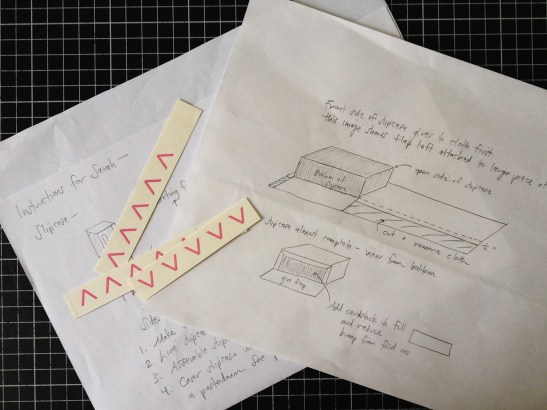 Instructions for Sarah —
Slipcase —
1. Make
2. Line slipcase
3. Assemble slipcase
4. Cover slipcase
a pastedown. See
Front side of slipcase gives to cloth first
this image shows flap left attached to large piece of
Bottom of
slipcase
open side of slipcase
cut & remove cloth
Slipcase almost complete – view from bottom
glue flap
Add cardstock to fill
and reduce
bump from fold over